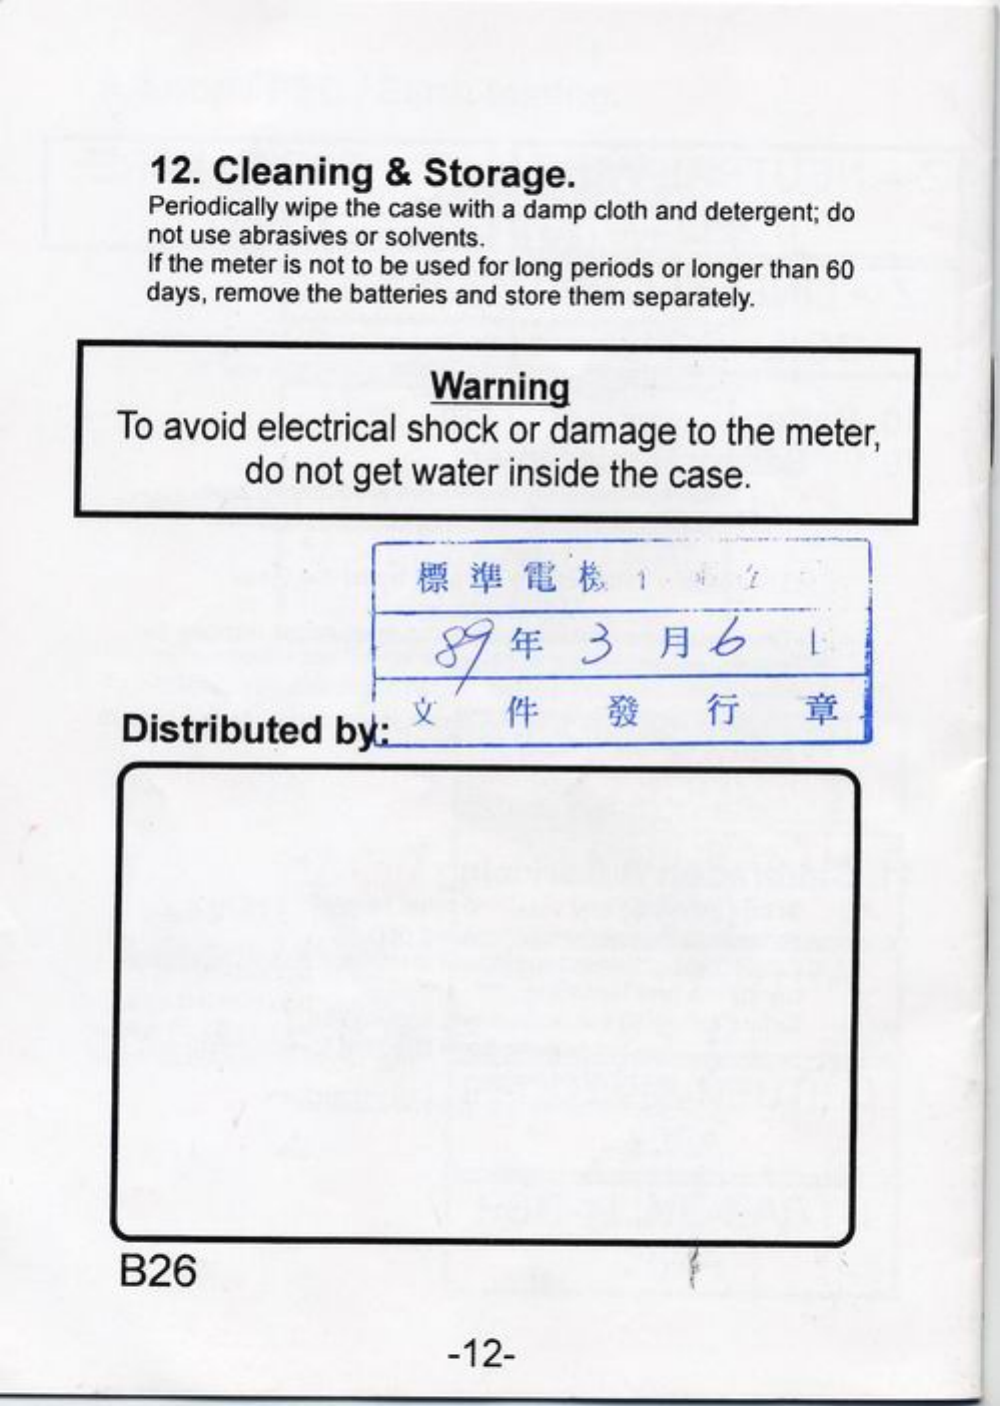 12. Cleaning & Storage.
Periodically wipe the case with a damp cloth and detergent; do
not use abrasives or solvents.
If the meter is not to be used for long periods or longer than 60
days, remove the batteries and store them separately.
Warning
To avoid electrical shock or damage to the meter,
do not get water inside the case.
標準電機
89年3月6
文件發行章
Distributed by:
B26
-12-